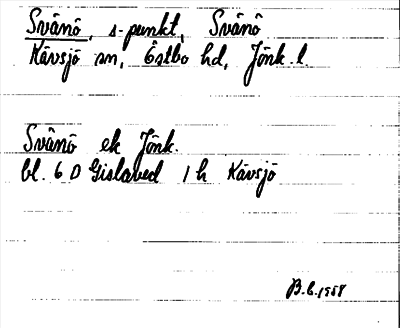 Svänö, s-punkt, Svänö
Kävsjö sn, Östbo hd, Jönk.l.
Svänö ek Jönk.
bl. 6 D Gislaved 1 h Kävsjö
B.b.1958